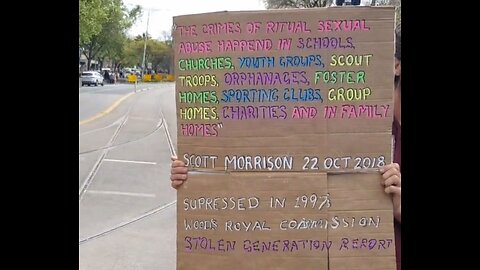 "THE CRIMES OF RITUAL SEXUAL
ABUSE HAPPEND IN SCHOOLS,
CHURCHES, YOUTH GROUPS, SCOUT
TROOPS, ORPHANAGES, FOSTER
HOMES, SPORTING CLUBS, GROUP
HOMES, CHARITIES AND IN FAMILY
HOMES"
SCOTT MORRISON 22 OCT 2018
SUPRESSED IN 1997
WOODS ROYAL COMMISSION
STOLEN GENERATION REPORT